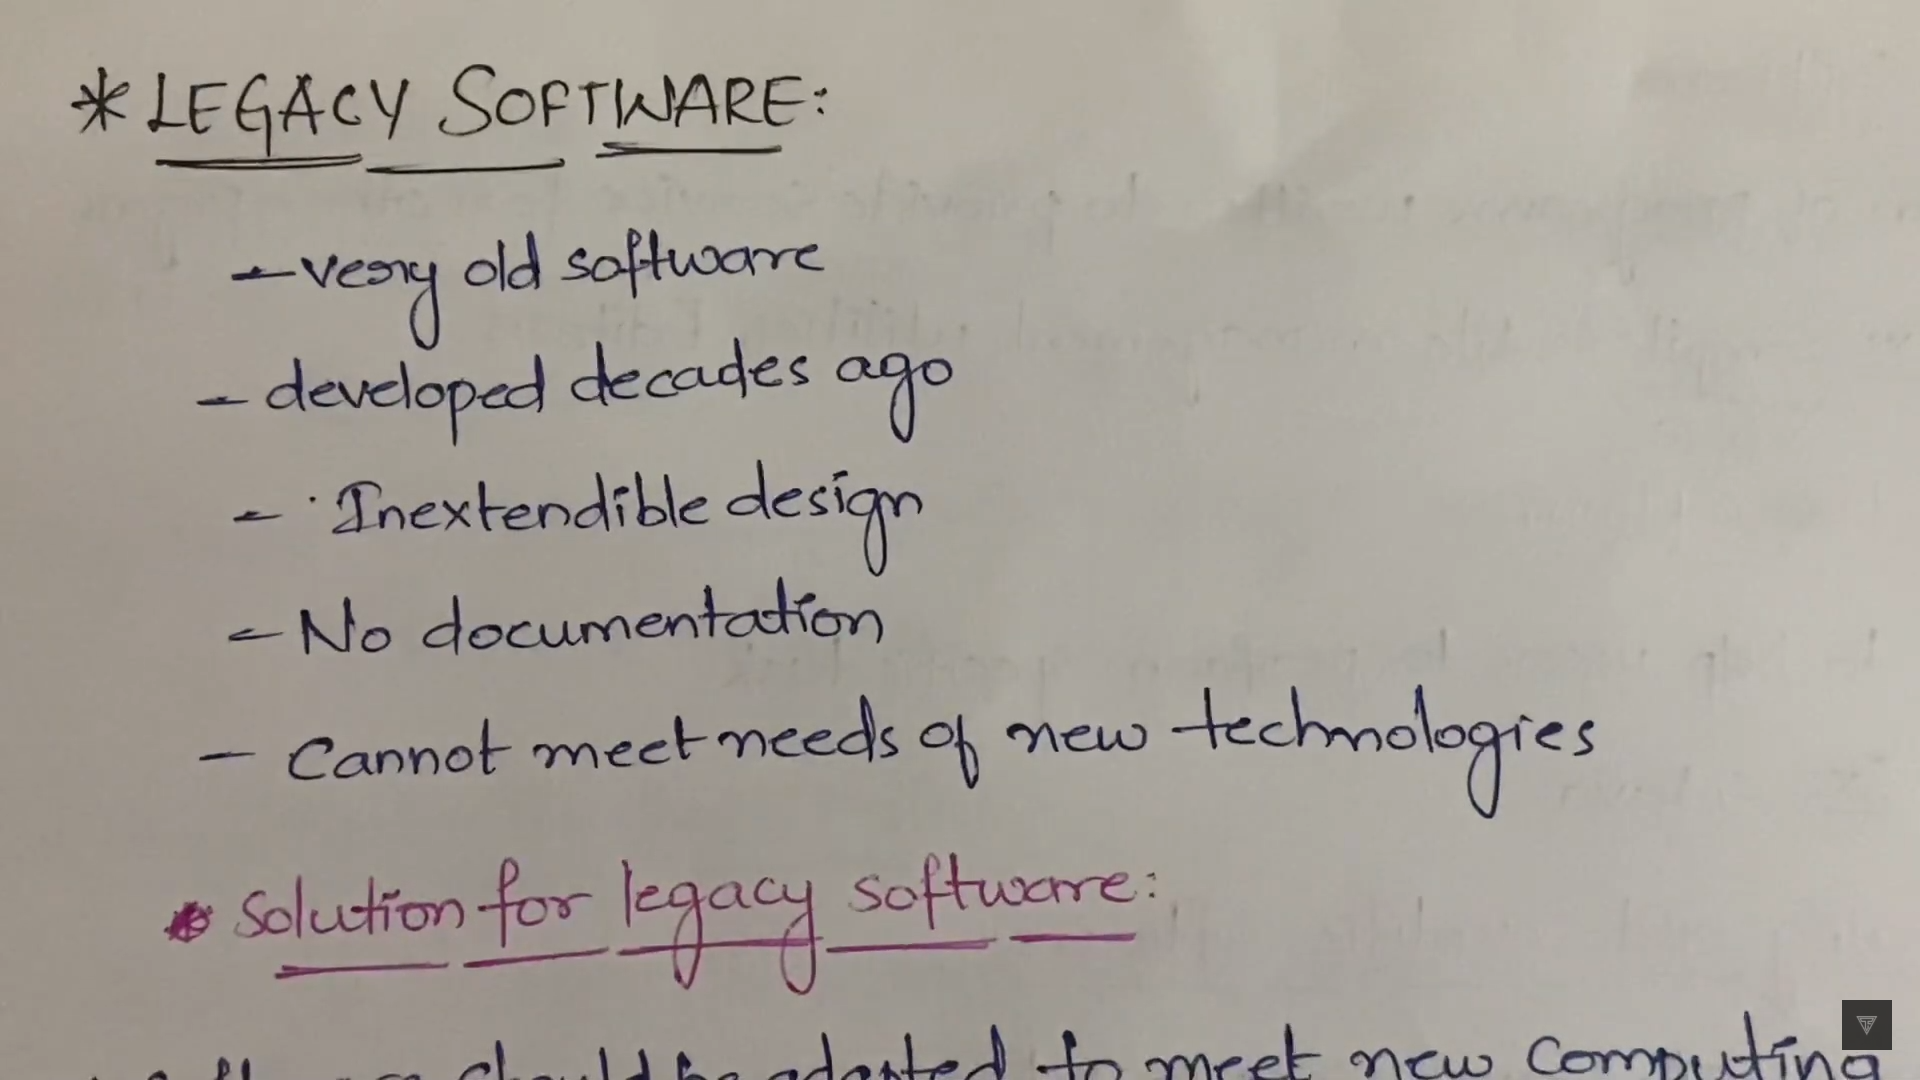 * LEGACY SOFTWARE:
- very old software
- developed decades ago
- Inextendible design
- No documentation
- Cannot meet needs of new technologies
• Solution for legacy software:
should be adapted to meet new computing